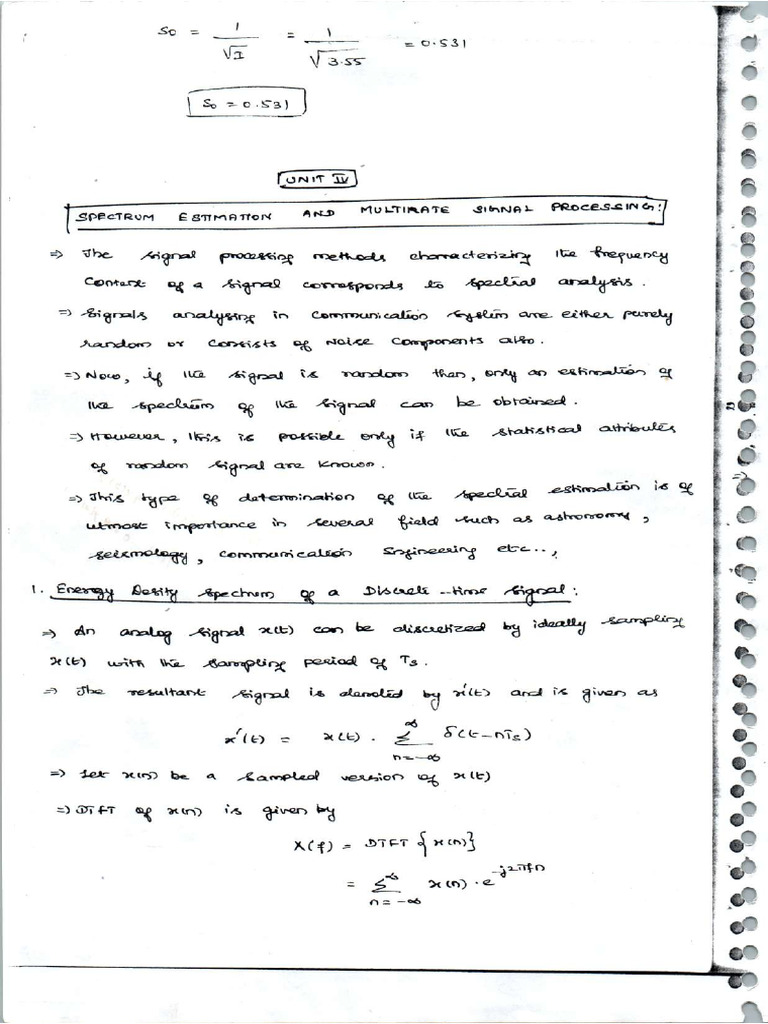 S0 = 1/√I = 1/√3.55 = 0.531
S0 = 0.531
UNIT IV
SPECTRUM ESTIMATION AND MULTIRATE SIGNAL PROCESSING:
⇒ The signal processing methods characterizing the frequency
Content of a signal corresponds to spectral analysis.
⇒ Signals analysing in communication system are either purely
random or consists of Noise components also.
⇒ Now, if the signal is random then, only an estimation of
the spectrum of the signal can be obtained.
⇒ However, this is possible only if the statistical attributes
of random signal are known.
⇒ This type of determination of the spectral estimation is of
utmost importance in several field such as astronomy,
seismology, communication Engineering etc..,
⇒
1. Energy Desity spectrum of a Discrete-time signal:
⇒ An analog signal x(t) can be discretized by ideally sampling
x(t) with the sampling period of Ts.
⇒ The resultant signal is denoted by x'(t) and is given as
x'(t) = x(t) . ∞ ∑ n=-∞ δ(t-nTs)
⇒ Let x(n) be a sampled version of x(t)
⇒ DTFT of x(n) is given by
X(f) = DTFT {x(n)}
= ∞ ∑ n=-∞ x(n) . e^-j2πfn